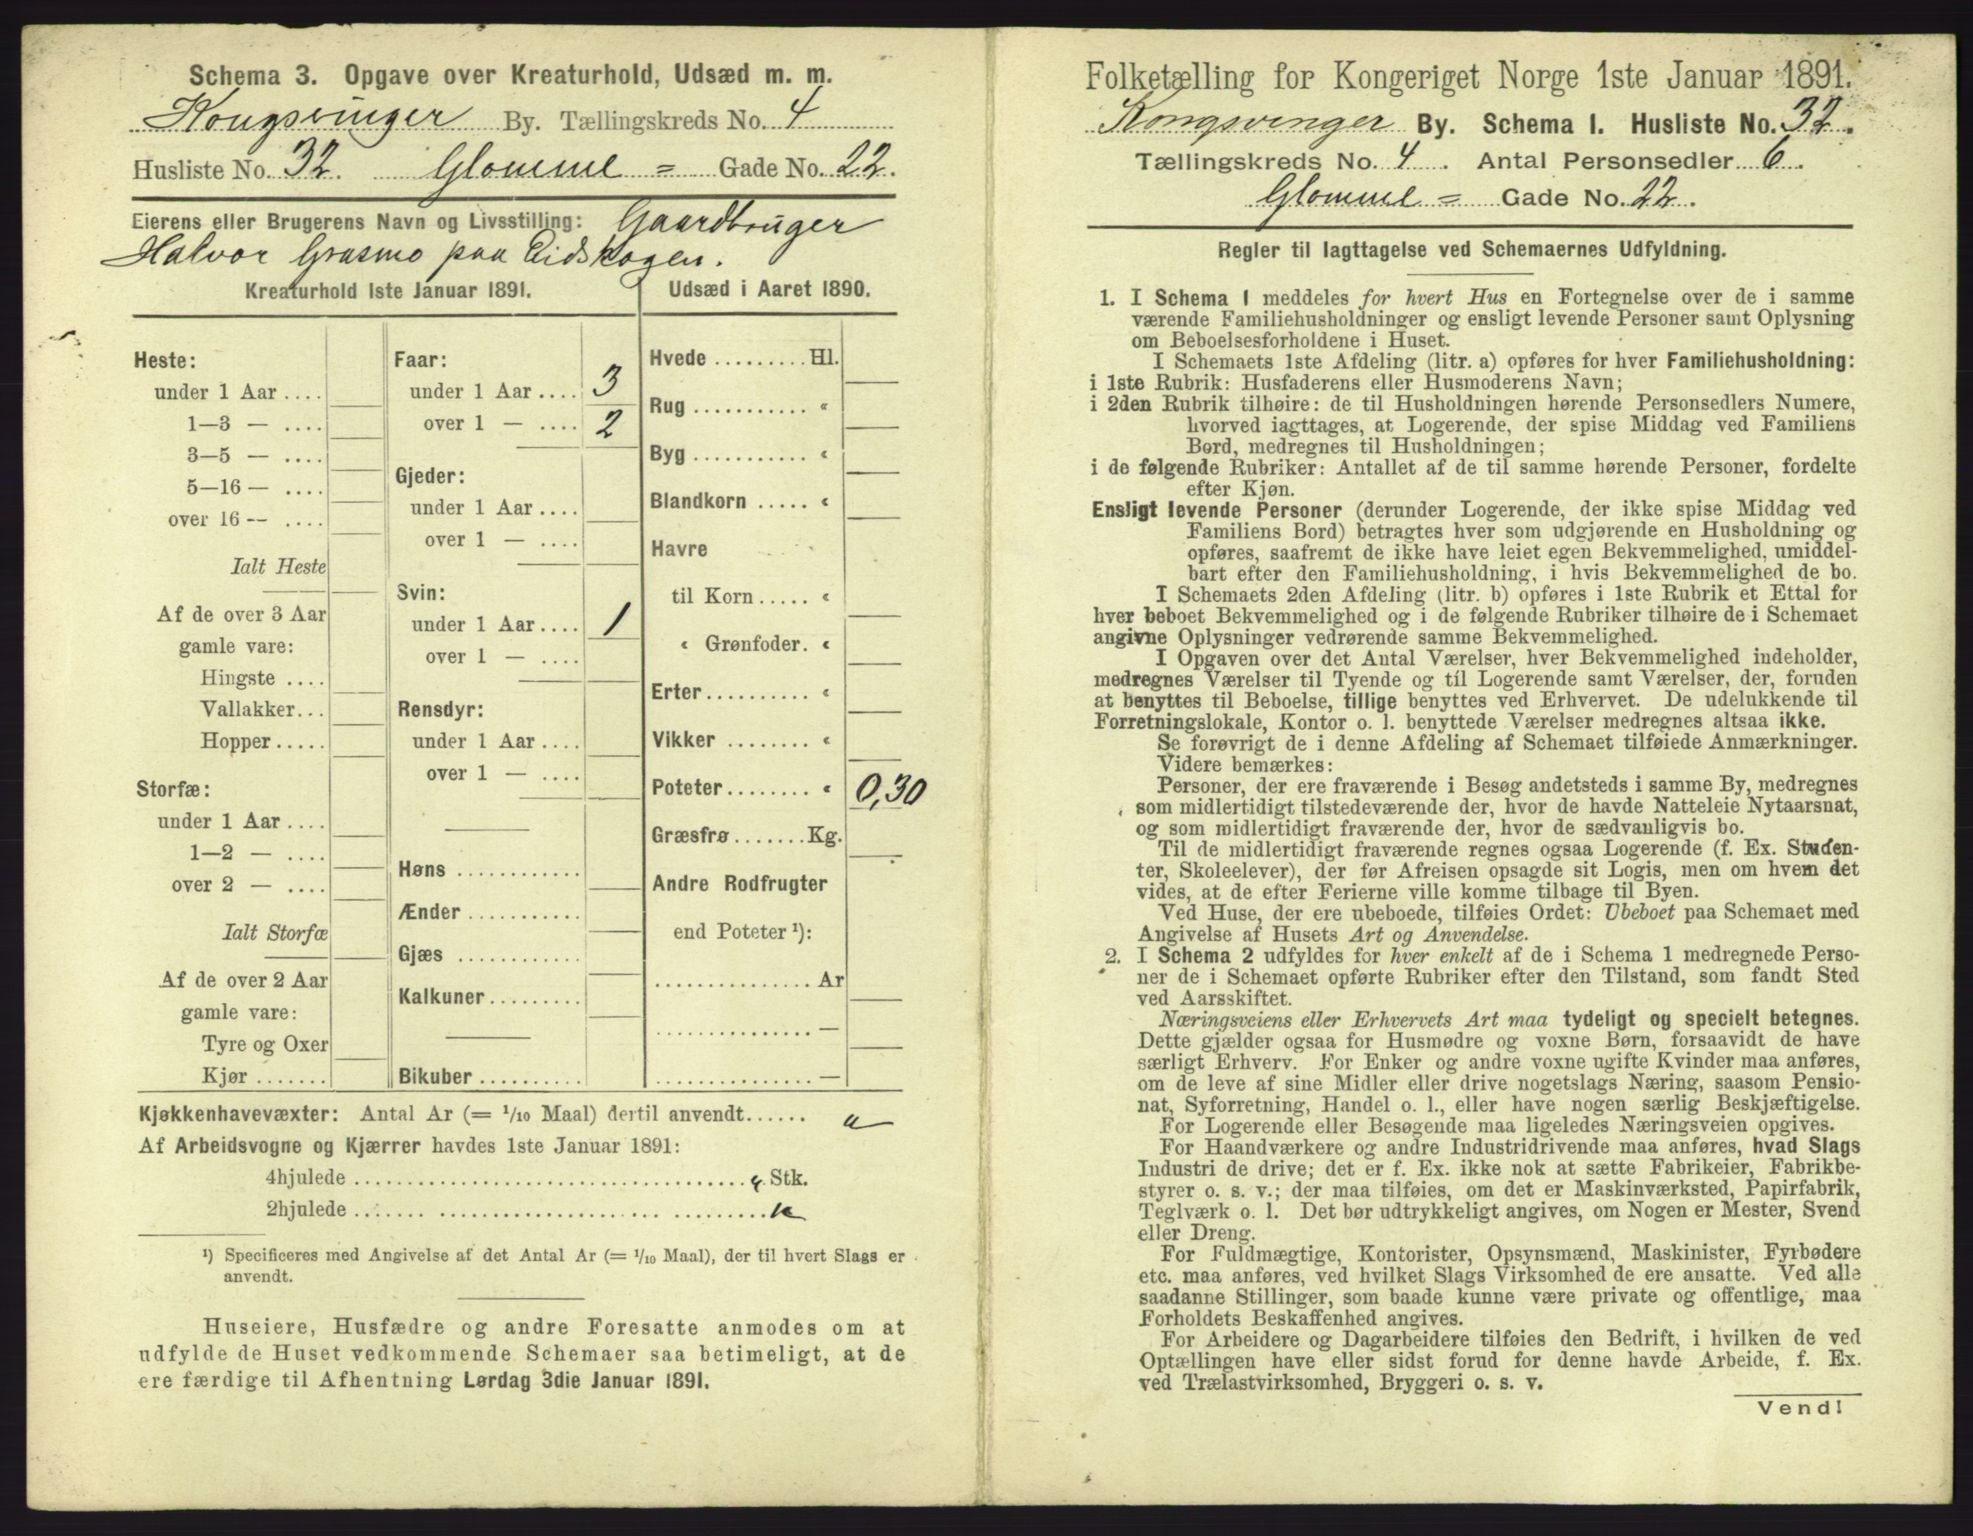 Schema 3. Opgave over Kreaturhold, Udsæd m. m.
Kongsvinger By. Tællingskreds No. 4
Husliste No. 32. Glomme = Gade No. 22.
Eierens eller Brugerens Navn og Livsstilling: Gaardbruger
Halvor Grasmo paa Eidskogen.
Kreaturhold 1ste Januar 1891.
Heste:
under 1 Aar ....
1—3 — ....
3—5 — ....
5—16 — ....
over 16 — ....
Ialt Heste
Af de over 3 Aar
gamle vare:
Hingste ....
Vallakker...
Hopper.....
Storfæ:
under 1 Aar ....
1—2 — ....
over 2 — ....
Ialt Storfæ
Af de over 2 Aar
gamle vare:
Tyre og Oxer
Kjør .......
Faar:
under 1 Aar .... 3
over 1 — .... 2
Gjeder:
under 1 Aar ....
over 1 — ....
Svin:
under 1 Aar.... 1
over 1 — ....
Rensdyr:
under 1 Aar....
over 1 — ....
Høns ............
Ænder ...........
Gjæs ............
Kalkuner.........
Bikuber ..........
Udsæd i Aaret 1890.
Hvede ......... Hl.
Rug ........... "
Byg ........... "
Blandkorn ..... "
Havre
til Korn ..... "
" Grønfoder. "
Erter.......... "
Vikker ........ "
Poteter........ " 0,30
Græsfrø ....... Kg.
Andre Rodfrugter
end Poteter ¹):
............... Ar
............... —
............... —
Kjøkkenhavevæxter: Antal Ar (= 1/10 Maal) dertil anvendt...... "
Af Arbeidsvogne og Kjærrer havdes 1ste Januar 1891:
4hjulede ...................................... " Stk.
2hjulede ...................................... "
¹) Specificeres med Angivelse af det Antal Ar (= 1/10 Maal), der til hvert Slags er
anvendt.
Huseiere, Husfædre og andre Foresatte anmodes om at
udfylde de Huset vedkommende Schemaer saa betimeligt, at de
ere færdige til Afhentning Lørdag 3die Januar 1891.
Folketælling for Kongeriget Norge 1ste Januar 1891.
Kongsvinger By. Schema 1. Husliste No. 32.
Tællingskreds No. 4. Antal Personsedler 6.
Glomme = Gade No. 22.
Regler til Iagttagelse ved Schemaernes Udfyldning.
1. I Schema 1 meddeles for hvert Hus en Fortegnelse over de i samme
værende Familiehusholdninger og ensligt levende Personer samt Oplysning
om Beboelsesforholdene i Huset.
I Schemaets 1ste Afdeling (litr. a) opføres for hver Familiehusholdning:
i 1ste Rubrik: Husfaderens eller Husmoderens Navn;
i 2den Rubrik tilhøire: de til Husholdningen hørende Personsedlers Numere,
hvorved iagttages, at Logerende, der spise Middag ved Familiens
Bord, medregnes til Husholdningen;
i de følgende Rubriker: Antallet af de til samme hørende Personer, fordelte
efter Kjøn.
Ensligt levende Personer (derunder Logerende, der ikke spise Middag ved
Familiens Bord) betragtes hver som udgjørende en Husholdning og
opføres, saafremt de ikke have leiet egen Bekvemmelighed, umiddel-
bart efter den Familiehusholdning, i hvis Bekvemmelighed de bo.
I Schemaets 2den Afdeling (litr. b) opføres i 1ste Rubrik et Ettal for
hver beboet Bekvemmelighed og i de følgende Rubriker tilhøire de i Schemaet
angivne Oplysninger vedrørende samme Bekvemmelighed.
I Opgaven over det Antal Værelser, hver Bekvemmelighed indeholder,
medregnes Værelser til Tyende og til Logerende samt Værelser, der, foruden
at benyttes til Beboelse, tillige benyttes ved Erhvervet. De udelukkende til
Forretningslokale, Kontor o. l. benyttede Værelser medregnes altsaa ikke.
Se forøvrigt de i denne Afdeling af Schemaet tilføiede Anmærkninger.
Videre bemærkes:
Personer, der ere fraværende i Besøg andetsteds i samme By, medregnes
som midlertidigt tilstedeværende der, hvor de havde Natteleie Nytaarsnat,
og som midlertidigt fraværende der, hvor de sædvanligvis bo.
Til de midlertidigt fraværende regnes ogsaa Logerende (f. Ex. Studen-
ter, Skoleelever), der før Afreisen opsagde sit Logis, men om hvem det
vides, at de efter Ferierne ville komme tilbage til Byen.
Ved Huse, der ere ubeboede, tilføies Ordet: Ubeboet paa Schemaet med
Angivelse af Husets Art og Anvendelse.
2. I Schema 2 udfyldes for hver enkelt af de i Schema 1 medregnede Perso-
ner de i Schemaet opførte Rubriker efter den Tilstand, som fandt Sted
ved Aarsskiftet.
Næringsveiens eller Erhvervets Art maa tydeligt og specielt betegnes.
Dette gjælder ogsaa for Husmødre og voxne Børn, forsaavidt de have
særligt Erhverv. For Enker og andre voxne ugifte Kvinder maa anføres,
om de leve af sine Midler eller drive nogetslags Næring, saasom Pensio-
nat, Syforretning, Handel o. l., eller have nogen særlig Beskjæftigelse.
For Logerende eller Besøgende maa ligeledes Næringsveien opgives.
For Haandværkere og andre Industridrivende maa anføres, hvad Slags
Industri de drive; det er f. Ex. ikke nok at sætte Fabrikeier, Fabrikbe-
styrer o. s. v.; der maa tilføies, om det er Maskinværksted, Papirfabrik,
Teglværk o. l. Det bør udtrykkeligt angives, om Nogen er Mester, Svend
eller Dreng.
For Fuldmægtige, Kontorister, Opsynsmænd, Maskinister, Fyrbødere
etc. maa anføres, ved hvilket Slags Virksomhed de ere ansatte. Ved alle
saadanne Stillinger, som baade kunne være private og offentlige, maa
Forholdets Beskaffenhed angives.
For Arbeidere og Dagarbeidere tilføies den Bedrift, i hvilken de ved
Optællingen have eller sidst forud for denne havde Arbeide, f. Ex.
ved Trælastvirksomhed, Bryggeri o. s. v.
Vend!